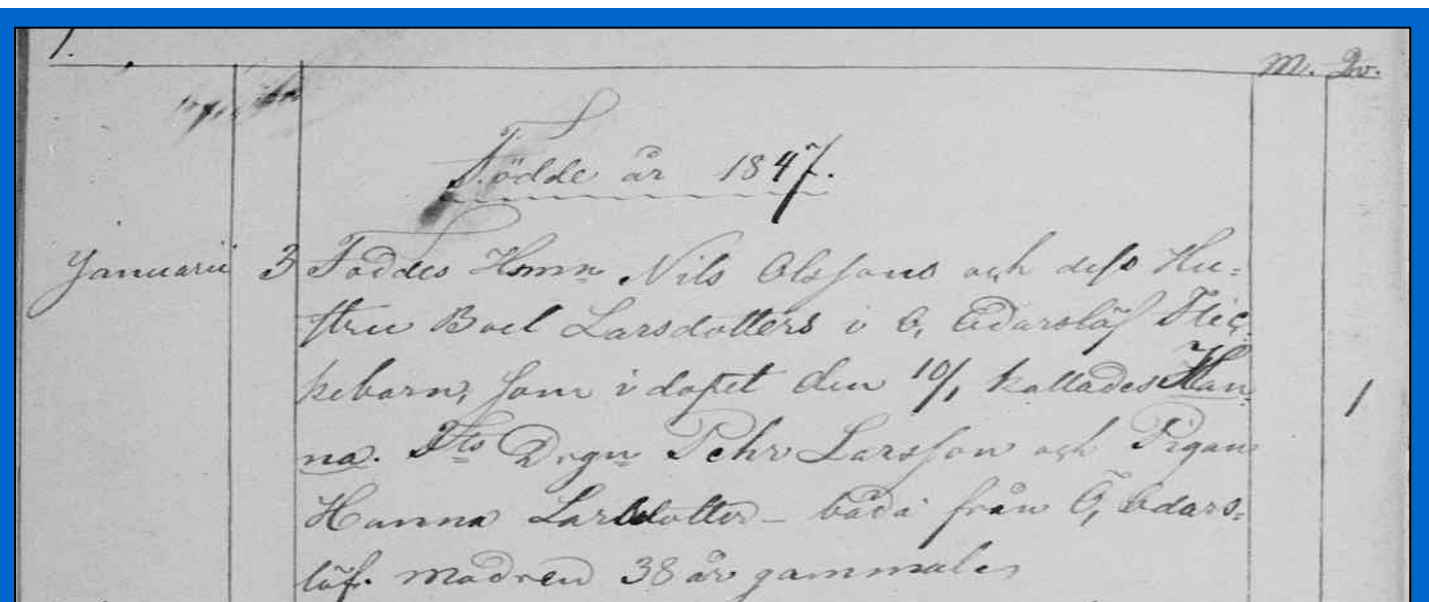 1.
M. Qv.
Födde år 1847.
Januarii 3 Föddes Hmn Nils Olssons och dess Hu=
stru Boel Larsdotters i Ö, Odarslöf Flic=
kebarn, som i dopet den 10/1 kallades Han
na. Tts Drgn Pehr Larsson och Pigan 1
Hanna Larsdotter – båda från Ö, Odars=
löf. Modren 38 år gammal